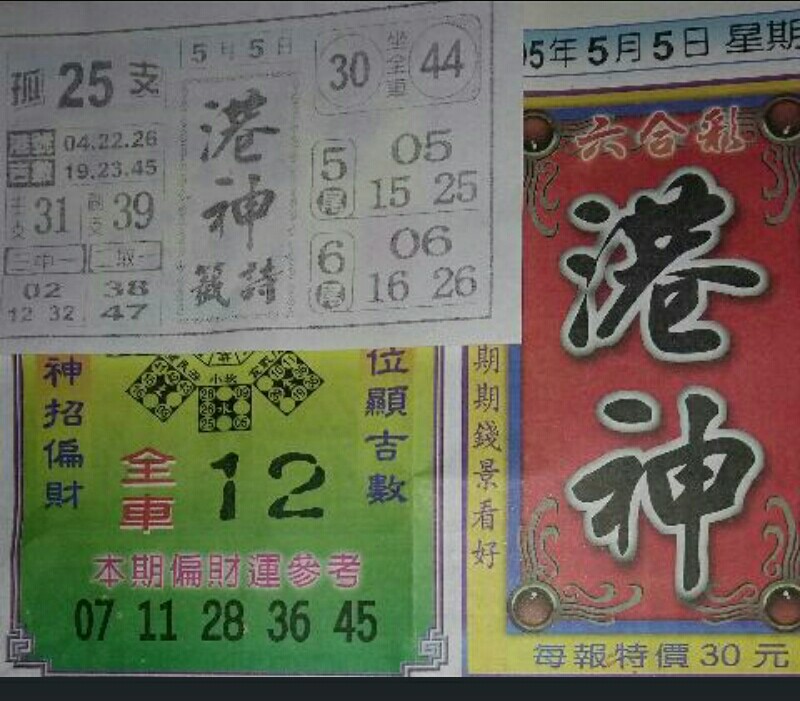 5月5日
孤25支
港號 04.22.26
吉數 19.23.45
31
39
二中一
02
12 32
38
47
港神
籤詩
30 坐全車 44
5尾
05
15 25
6尾
06
16 26
神招偏財
小狄
水
位顯吉數
全車 12
本期偏財運參考
07 11 28 36 45
95年5月5日 星期
六合彩
港神
期期錢景看好
每報特價30元